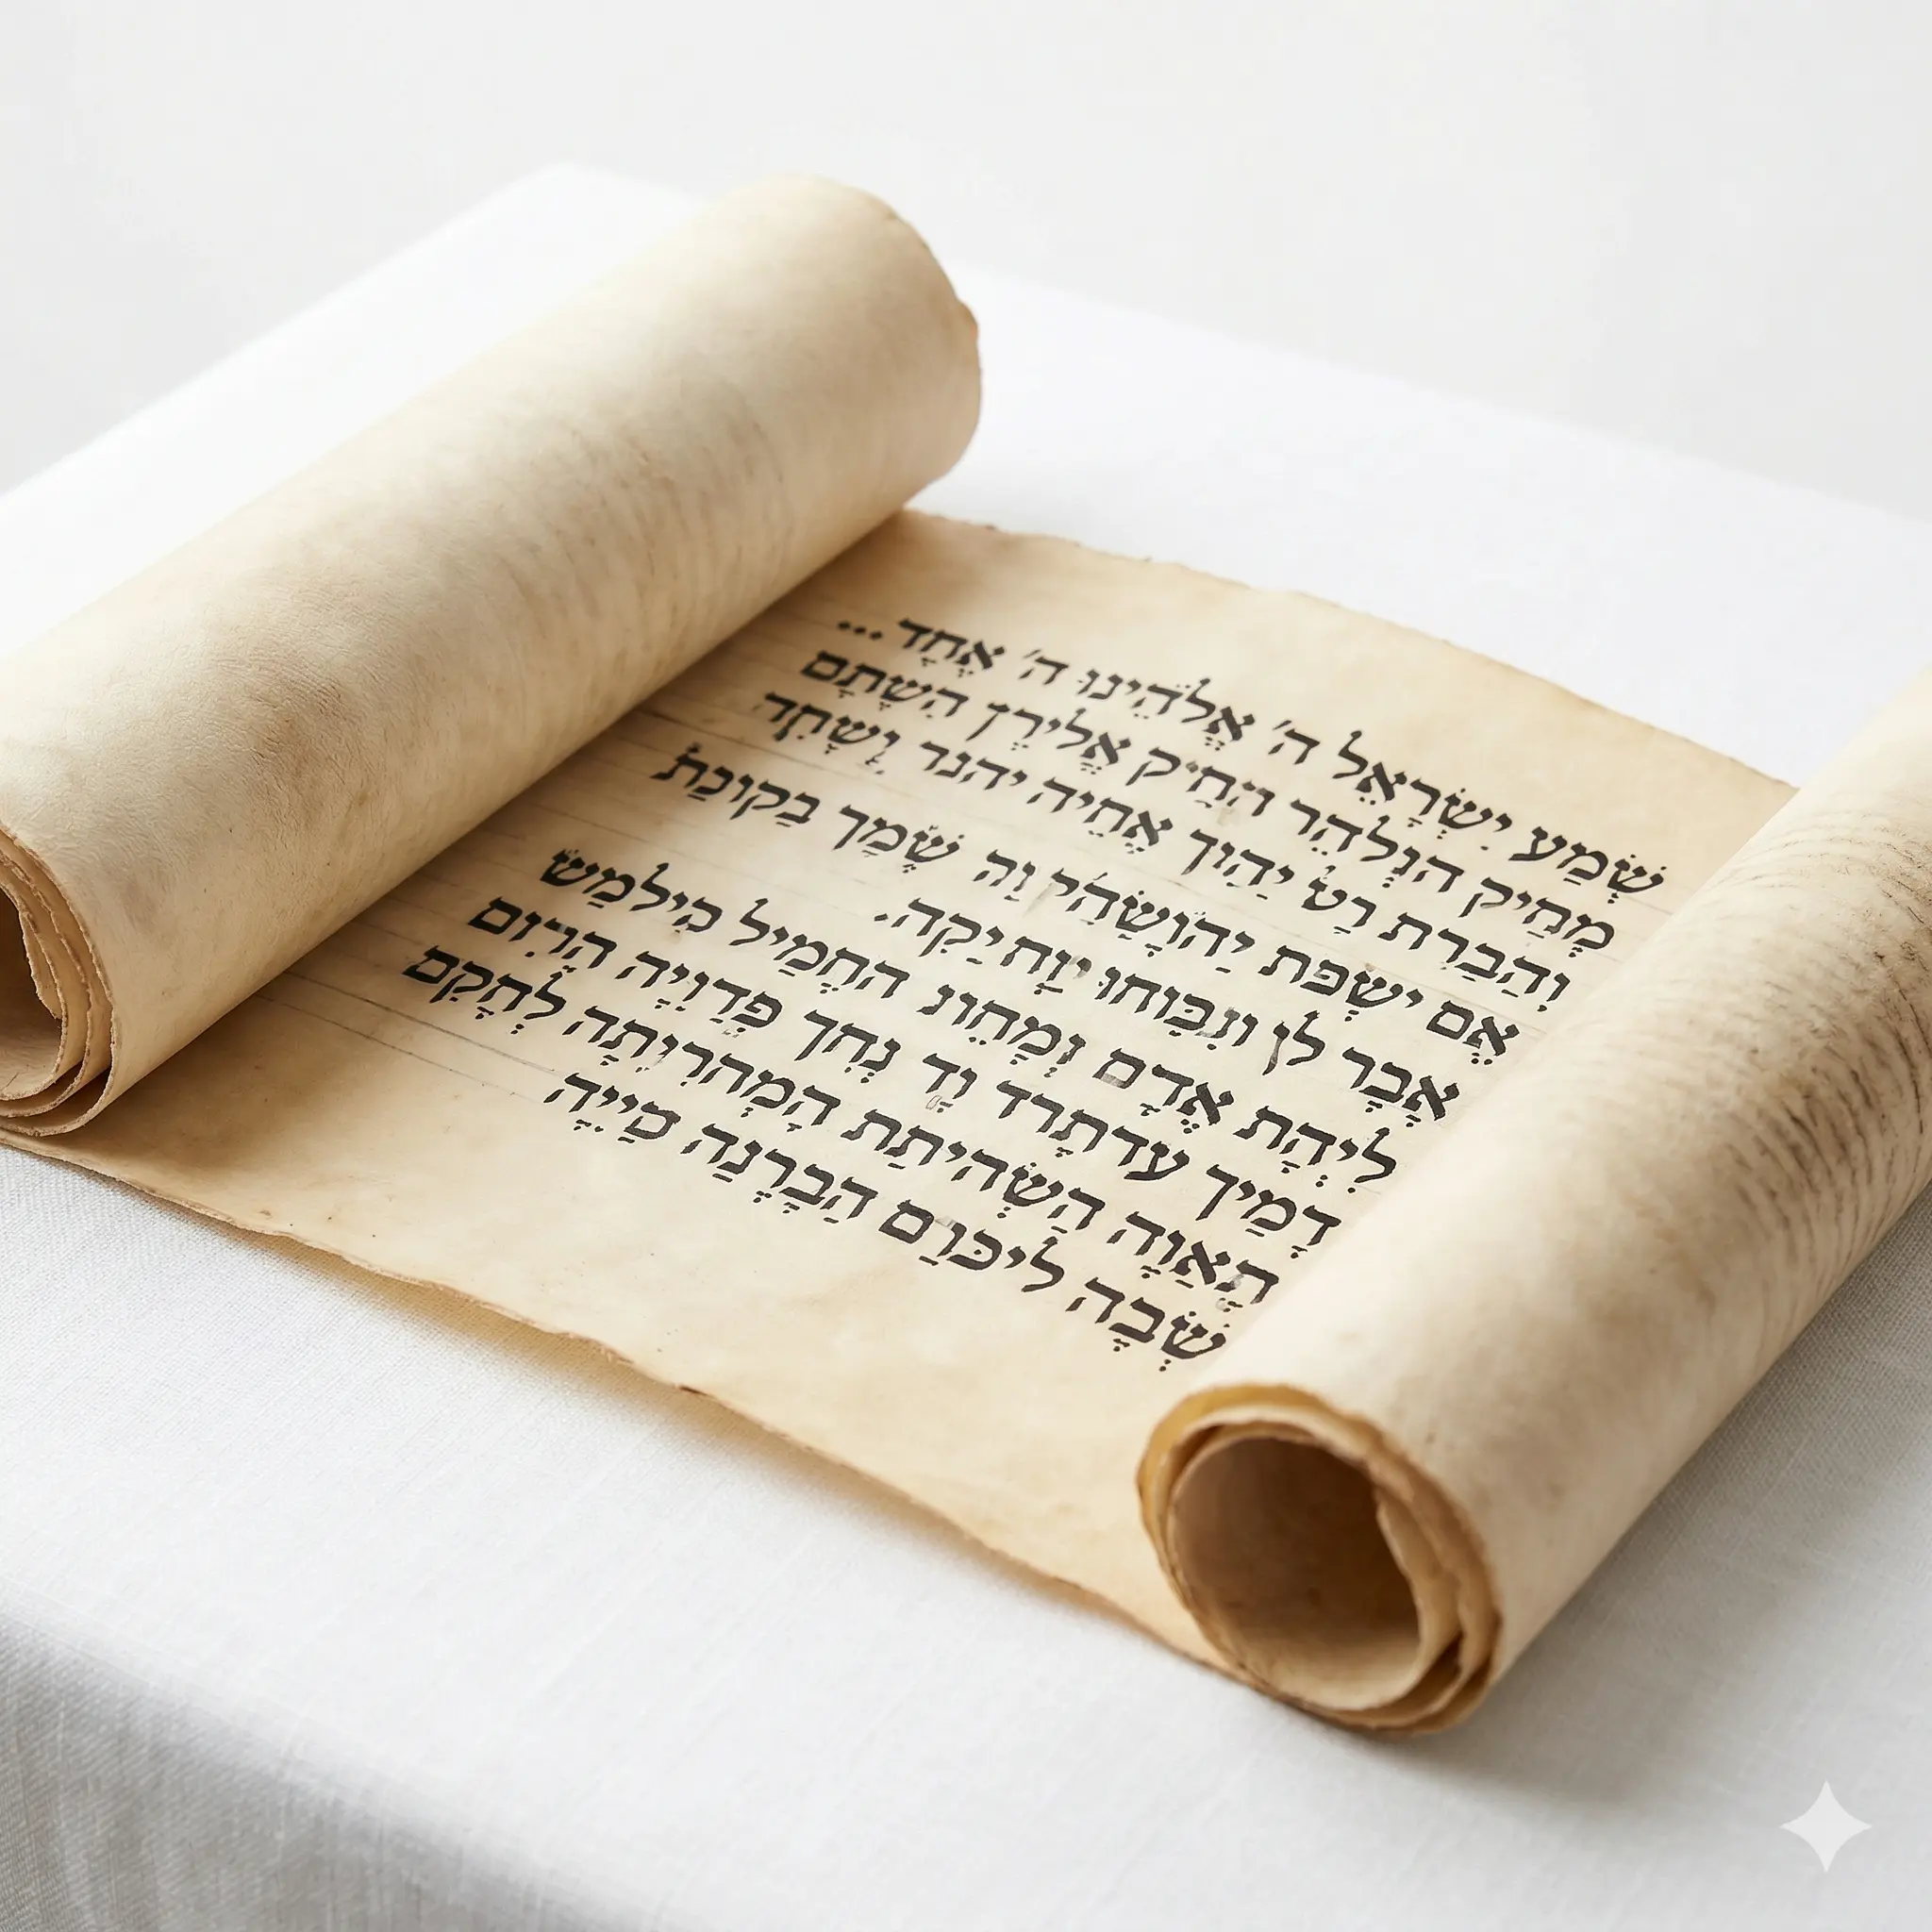 שְׁמַע יִשְׂרָאֵל ה' אֱלֹהֵינוּ ה' אֶחָד...
מְחַיק הוְּלהֵר החַיק אֱלירֶן השְתָם
וְהַבַרת רַט יַהַוך אֱחַיה יהנר וְשְחִד
אֶם ישְפּת יַהוְשָהי וַה שְמָך בַקונַת
אָבָר לן ונִכַּוחו יַוָח יַקִה.
לִיְהָת אֱדָם וְמָחֵונ החֶמַיל מִילמַש
דָמַיך עדתָרד וָד נְחך פְדַוִיָה הרִום
הָאַוָה הָשְׂהיתַת הָמְהרִיִתָה לְחָקִם
שְׁבָה ליכּוַם הַבָרְנַה מַייִה